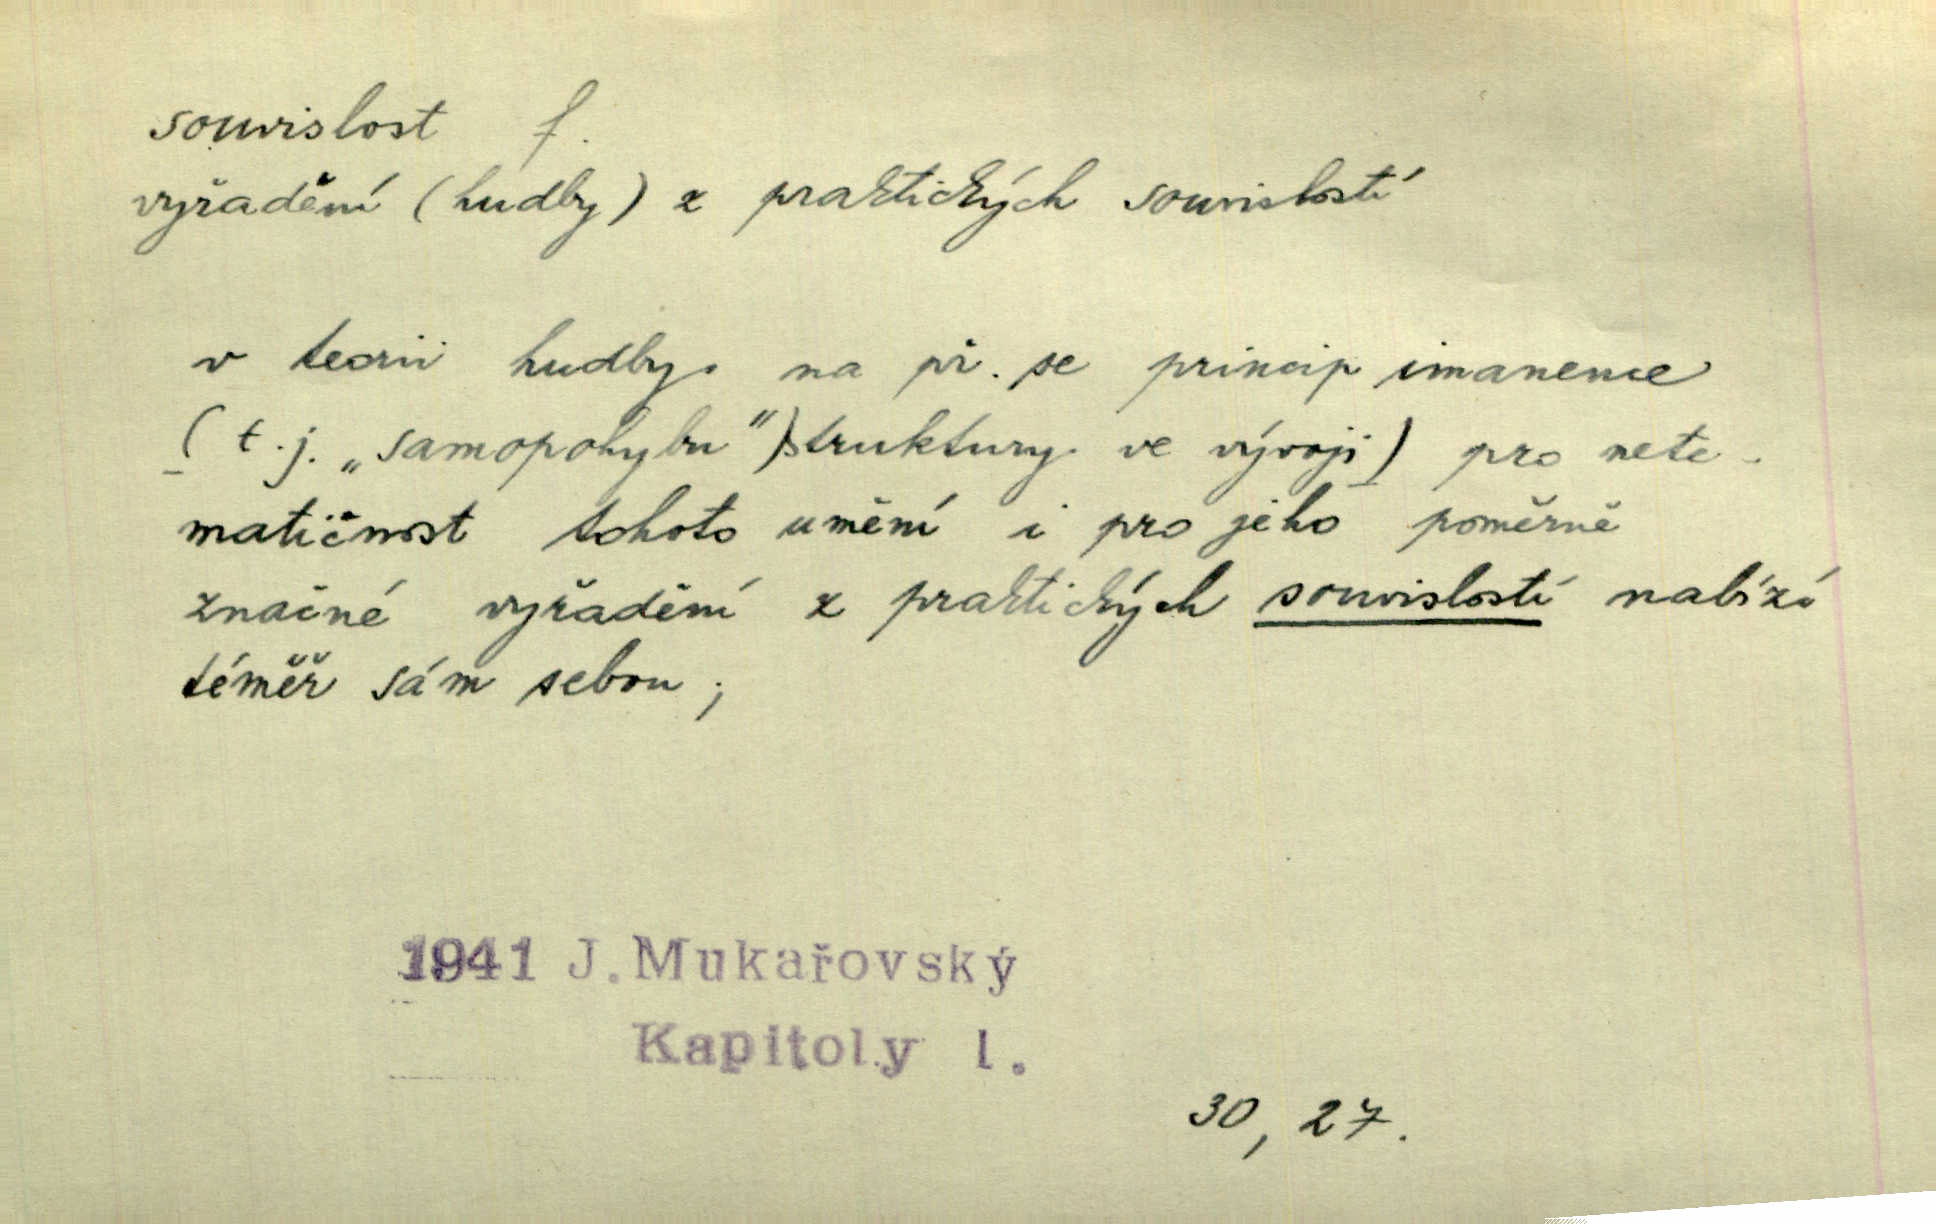 souvislost f.
vyřadění (hudby) z praktických souvislostí
v teorii hudby na př. se princip imanence
( t.j. „samopohybu") struktury ve vývoji) pro nete-
matičnost tohoto umění i pro jeho poměrně
značné vyřadění z praktických souvislostí nabízí
téměř sám sebou ;
1941 J. Mukařovský
Kapitoly 1.
30, 27.